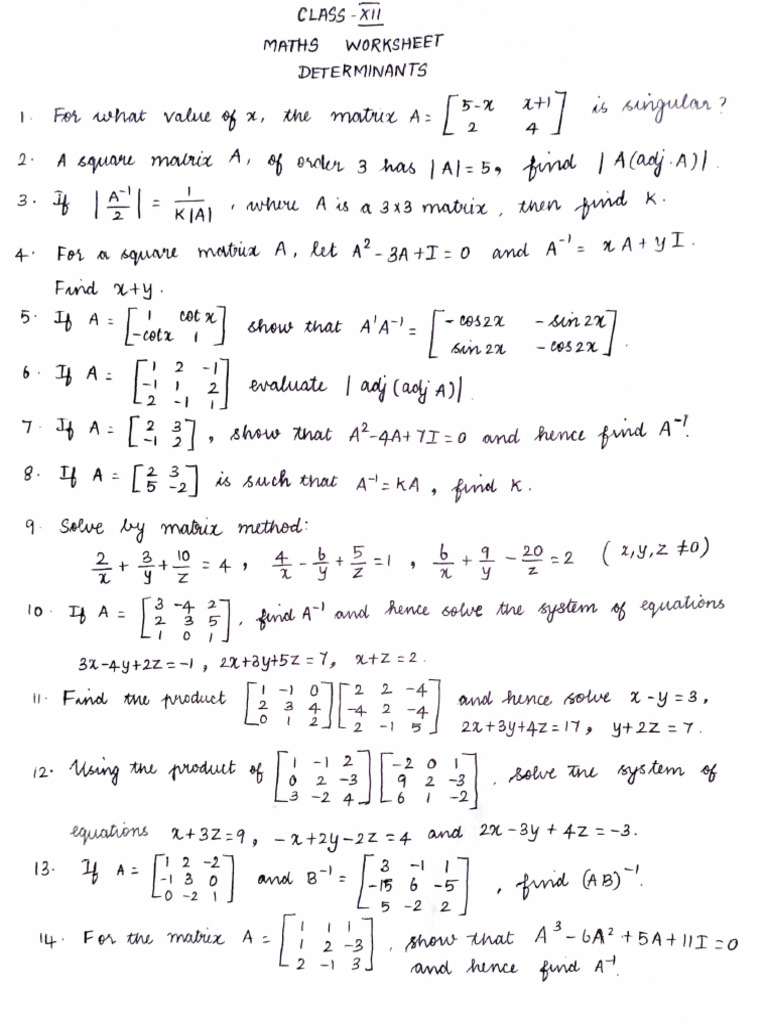 CLASS - XII
MATHS WORKSHEET
DETERMINANTS
1. For what value of x, the matrix A = [5-x x+1; 2 4] is singular?
2. A square matrix A, of order 3 has |A| = 5, find |A(adj.A)|.
3. If |A⁻¹/2| = 1/K|A|, where A is a 3x3 matrix, then find K.
4. For a square matrix A, let A² - 3A + I = 0 and A⁻¹ = xA + yI.
Find x+y.
5. If A = [1 cotx; -cotx 1] show that A'A⁻¹ = [-cos2x -sin2x; sin2x -cos2x].
6. If A = [1 2 -1; -1 1 2; 2 -1 1] evaluate |adj(adj A)|.
7. If A = [2 3; -1 2], show that A²-4A+7I=0 and hence find A⁻¹.
8. If A = [2 3; 5 -2] is such that A⁻¹ = KA, find K.
9. Solve by matrix method:
2/x + 3/y + 10/z = 4, 4/x - 6/y + 5/z = 1, 6/x + 9/y - 20/z = 2 (x,y,z ≠0)
10. If A = [3 -4 2; 2 3 5; 1 0 1], find A⁻¹ and hence solve the system of equations
3x-4y+2z=-1, 2x+3y+5z=7, x+z=2.
11. Find the product [1 -1 0; 2 3 4; 0 1 2] [2 2 -4; -4 2 -4; 2 -1 5] and hence solve x-y=3,
2x+3y+4z=17, y+2z=7.
12. Using the product of [1 -1 2; 0 2 -3; 3 -2 4] [-2 0 1; 9 2 -3; 6 1 -2], solve the system of
equations x+3z=9, -x+2y-2z=4 and 2x-3y+4z=-3.
13. If A = [1 2 -2; -1 3 0; 0 -2 1] and B⁻¹ = [3 -1 1; -15 6 -5; 5 -2 2], find (AB)⁻¹.
14. For the matrix A = [1 1 1; 1 2 -3; 2 -1 3], show that A³-6A²+5A+11I=0
and hence find A⁻¹.